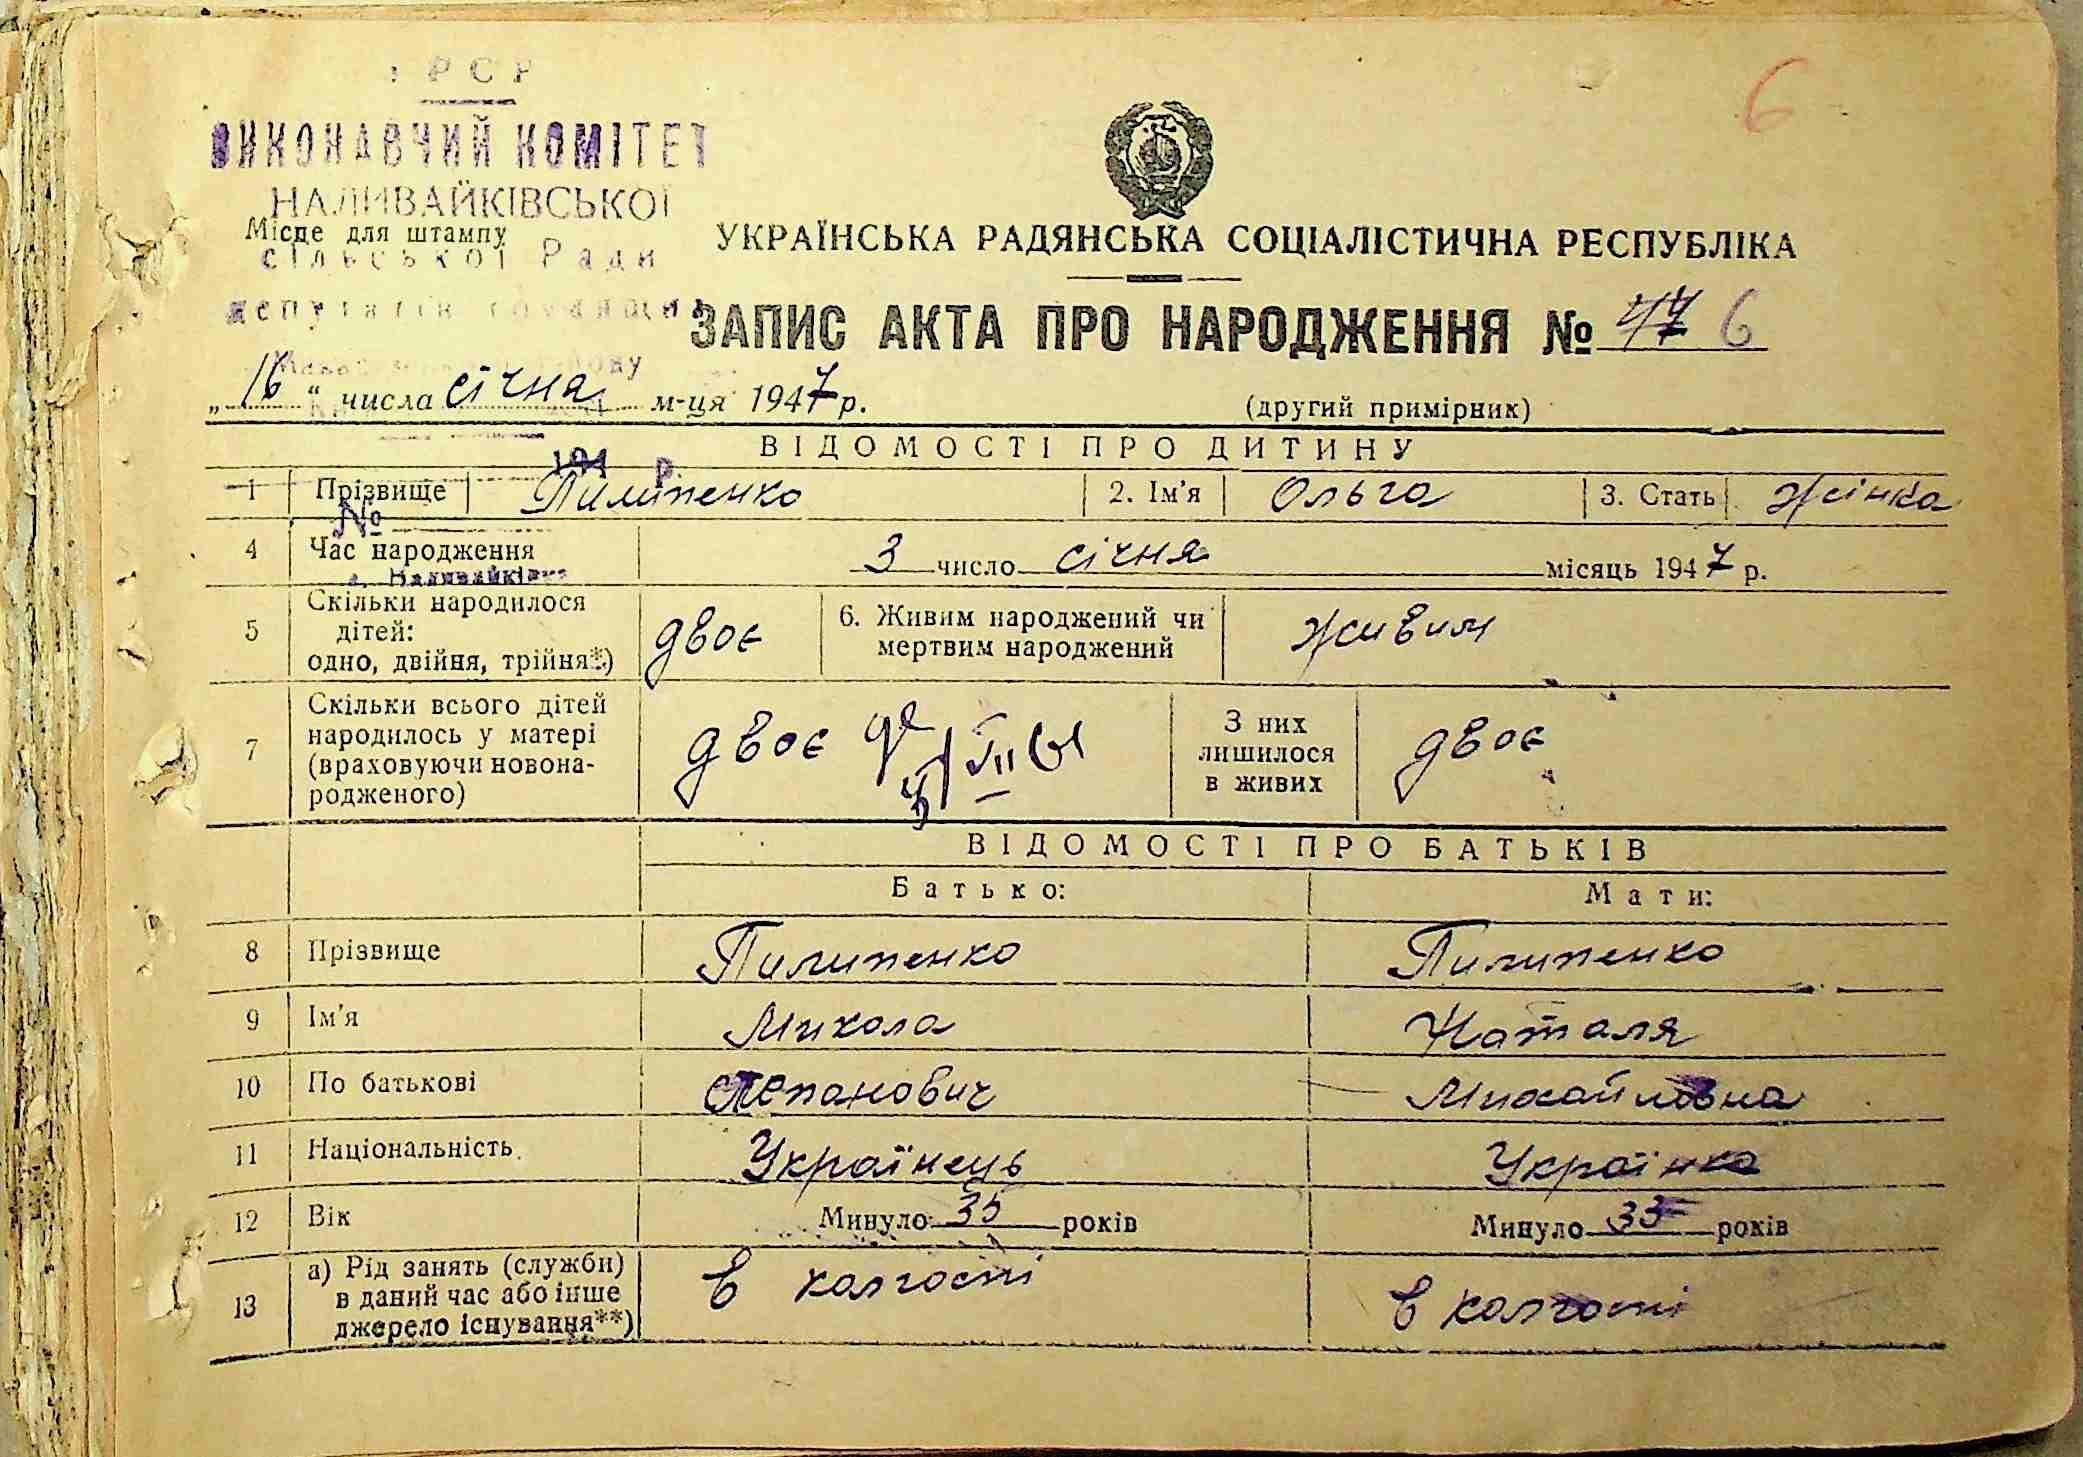 6
РСР
ВИКОНАВЧИЙ КОМІТЕТ
НАЛИВАЙКІВСЬКОЇ
Місце для штампу
сільської Ради
депутатів трудящих
УКРАЇНСЬКА РАДЯНСЬКА СОЦІАЛІСТИЧНА РЕСПУБЛІКА
ЗАПИС АКТА ПРО НАРОДЖЕННЯ № 6
„16“ числа січня м-ця 1947 р.
(другий примірник)
ВІДОМОСТІ ПРО ДИТИНУ
194 р.
1 Прізвище Пилипенко 2. Ім'я Ольга 3. Стать жінка
№
4 Час народження 3 число січня місяць 1947 р.
с. Наливайківка
5 Скільки народилося дітей: одно, двійня, трійня*) двоє 6. Живим народжений чи мертвим народжений живим
7 Скільки всього дітей народилось у матері (враховуючи новонародженого) двоє З них лишилося в живих двоє
ВІДОМОСТІ ПРО БАТЬКІВ
Батько: Мати:
8 Прізвище Пилипенко Пилипенко
9 Ім'я Микола Наталя
10 По батькові Степанович Михайловна
11 Національність Українець Українка
12 Вік Минуло 35 років Минуло 33 років
13 а) Рід занять (служби) в даний час або інше джерело існування**) в колгоспі в колгоспі